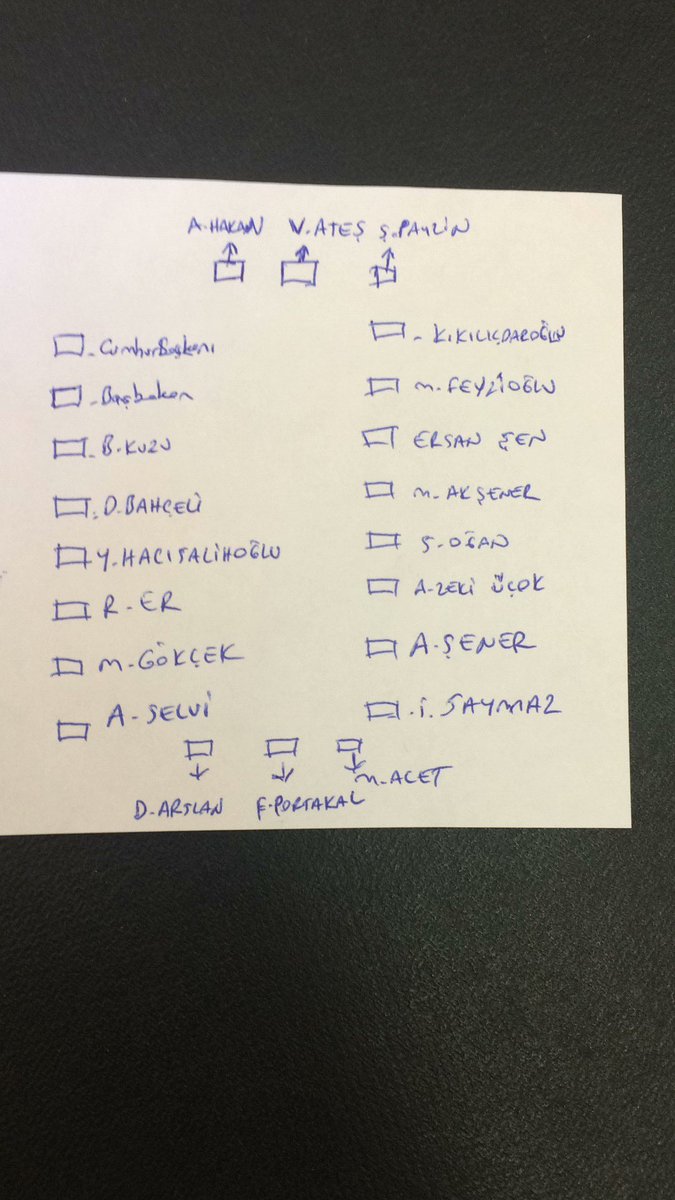 A.HAKAN V.ATEŞ Ş.PAYLİN
- Cumhurbaşkanı
- K.KILIÇDAROĞLU
- Başbakan
M.FEYZİOĞLU
- B.KUZU
ERSAN ŞEN
- D.BAHÇELİ
M.AKŞENER
Y.HACISALİHOĞLU
S.OĞAN
R.ER
A.ZEKİ ÜÇOK
M.GÖKÇEK
A.ŞENER
A.SELVİ
- İ.SAYMAZ
D.ARSLAN F.PORTAKAL M.ACET